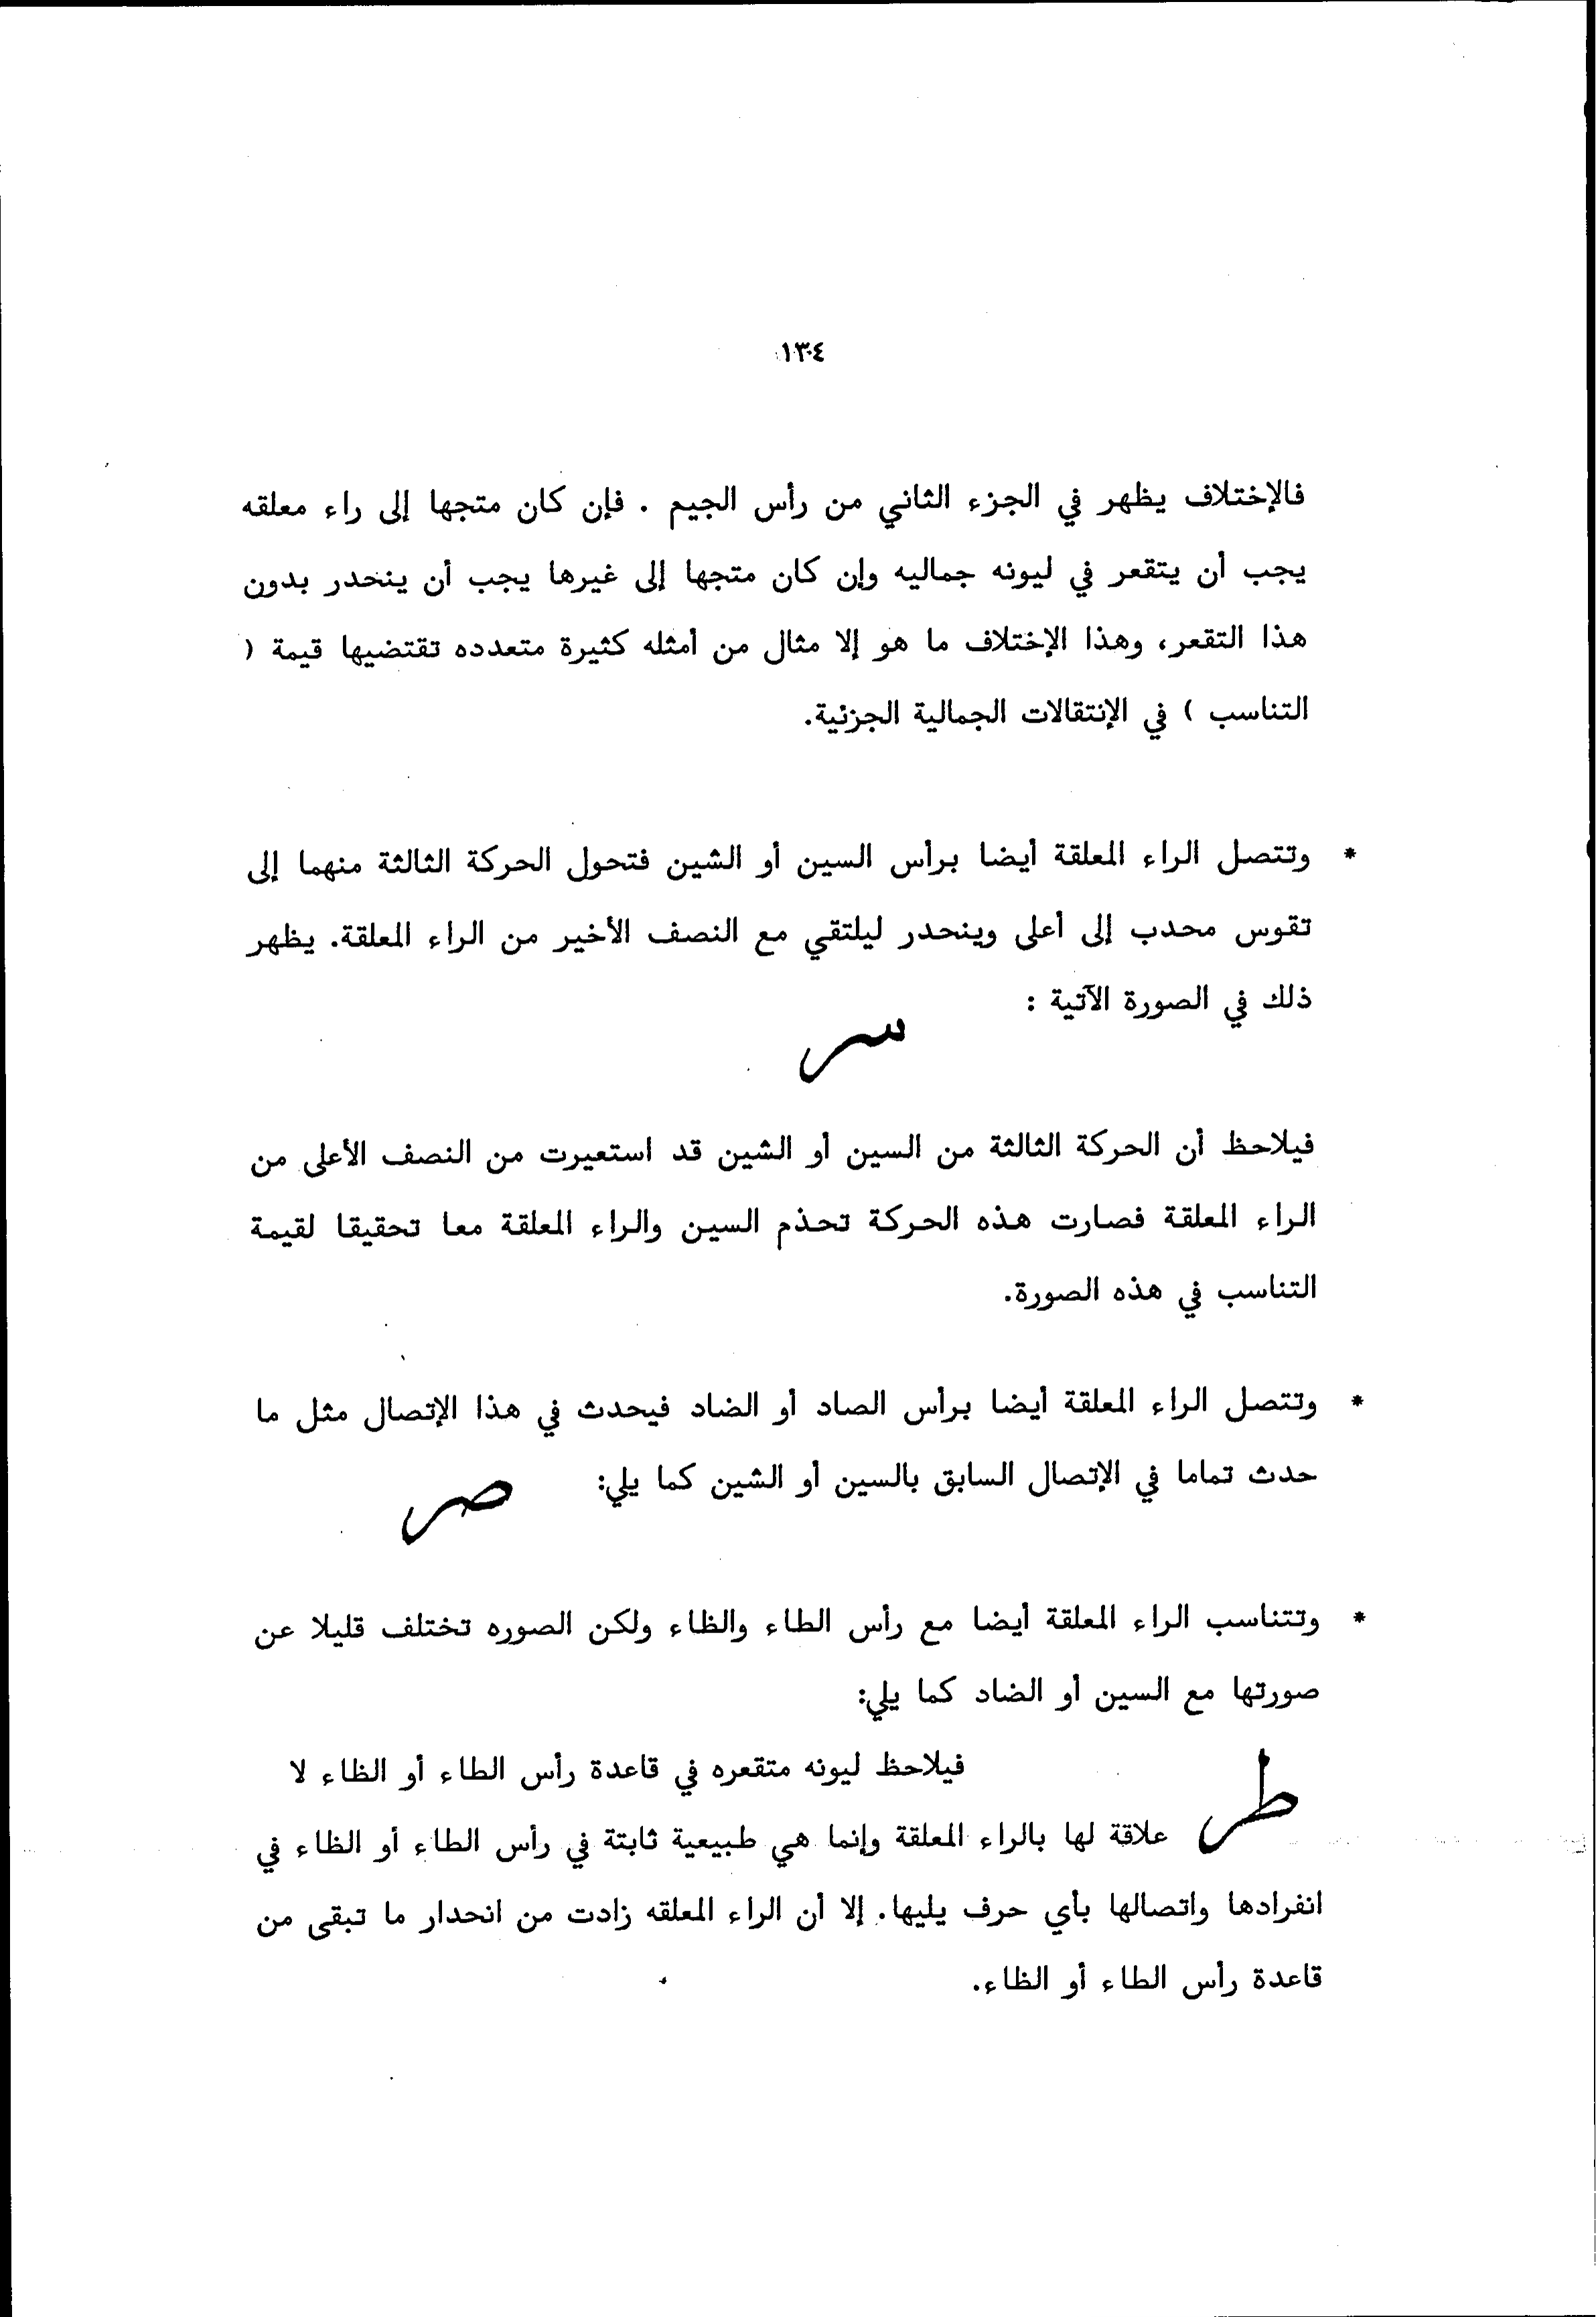 ١٣٤
فالإختلاف يظهر في الجزء الثاني من رأس الجيم . فإن كان متجها إلى راء معلقه
يجب أن يتقعر في ليونه جماليه وإن كان متجها إلى غيرها يجب أن ينحدر بدون
هذا التقعر، وهذا الإختلاف ما هو إلا مثال من أمثله كثيرة متعدده تقتضيها قيمة (
التناسب ) في الإنتقالات الجمالية الجزئية.
* وتتصل الراء المعلقة أيضا برأس السين أو الشين فتحول الحركة الثالثة منهما إلى
تقوس محدب إلى أعلى وينحدر ليلتقي مع النصف الأخير من الراء المعلقة. يظهر
ذلك في الصورة الآتية :
سر
فيلاحظ أن الحركة الثالثة من السين أو الشين قد استعيرت من النصف الأعلى من
الراء المعلقة فصارت هذه الحركة تحذم السين والراء المعلقة معا تحقيقا لقيمة
التناسب في هذه الصورة.
* وتتصل الراء المعلقة أيضا برأس الصاد أو الضاد فيحدث في هذا الإتصال مثل ما
حدث تماما في الإتصال السابق بالسين أو الشين كما يلي: صر
* وتتناسب الراء المعلقة أيضا مع رأس الطاء والظاء ولكن الصوره تختلف قليلا عن
صورتها مع السين أو الضاد كما يلي:
طر فيلاحظ ليونه متقعره في قاعدة رأس الطاء أو الظاء لا
علاقة لها بالراء المعلقة وإنما هي طبيعية ثابتة في رأس الطاء أو الظاء في
انفرادها واتصالها بأي حرف يليها. إلا أن الراء المعلقه زادت من انحدار ما تبقى من
قاعدة رأس الطاء أو الظاء.